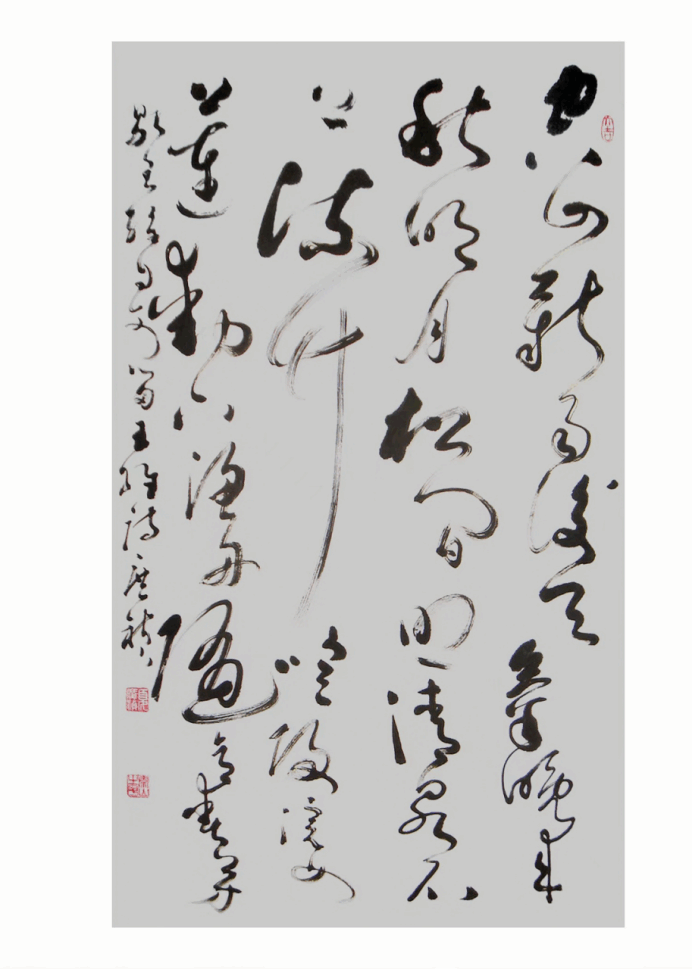 空山新雨後天氣晚來
秋明月松間照清泉石
上流竹喧歸浣女
蓮動下漁舟隨意春芳
歇王孫自可留王維詩